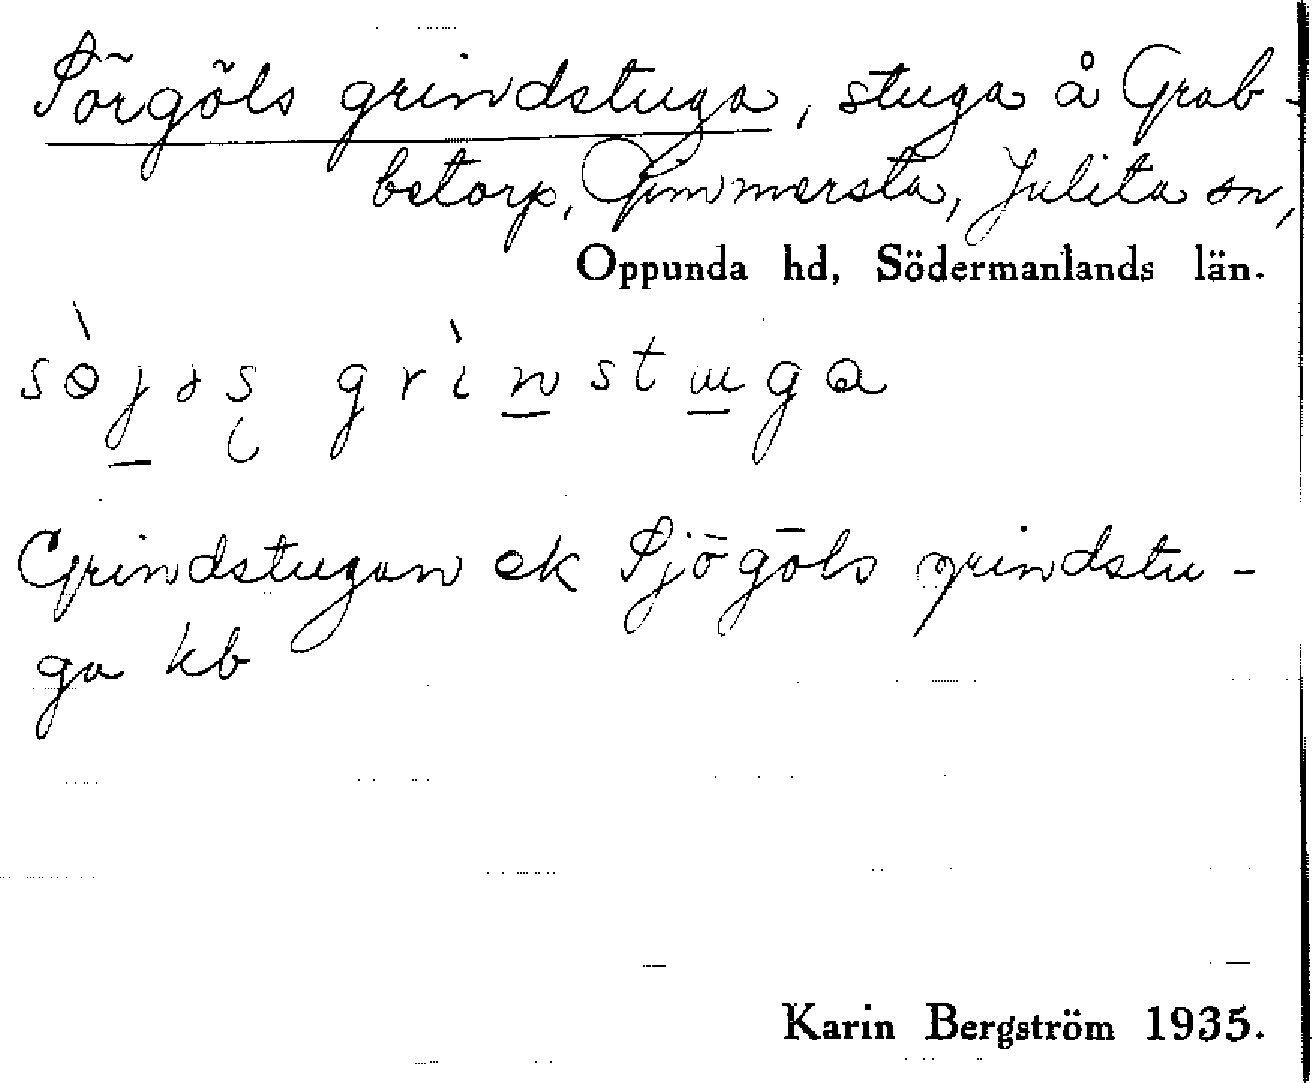 Sörgöls grindstuga, stuga å Grab-
betorp, Gimmersta, Julita sn,
Oppunda hd, Södermanlands län.
grinstuga
Grindstugan ek Sjögöls grindstu-
ga kb
Karin Bergström 1935.